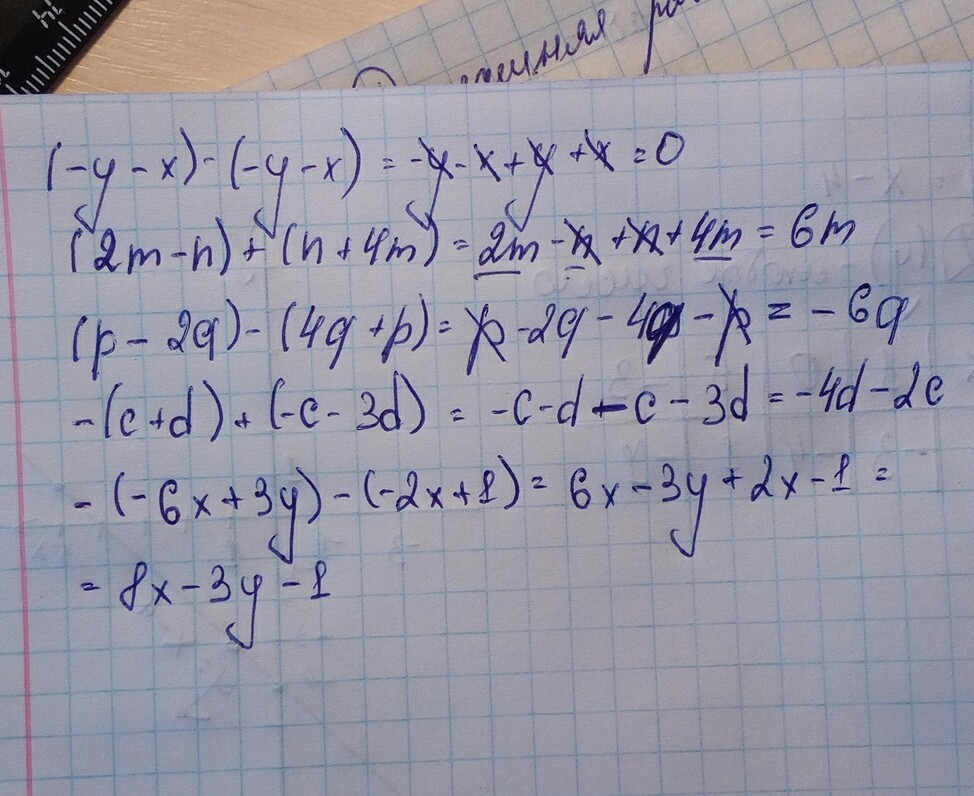 (-y-x)-(-y-x)=-y-x+y+x=0
(2m-n)+(n+4m)=2m-n+n+4m=6m
(p-2q)-(4q+p)=p-2q-4q-p=-6q
-(c+d)+(-c-3d)=-c-d-c-3d=-4d-2c
-(-6x+3y)-(-2x+1)=6x-3y+2x-1=
=8x-3y-1